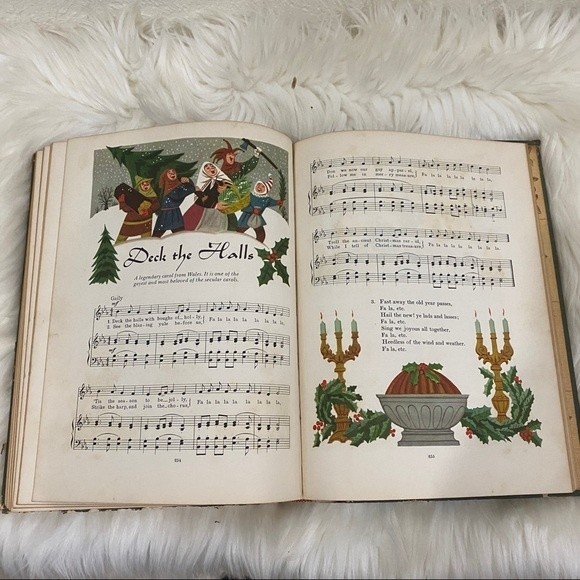 Deck the Halls
A legendary carol from Wales. It is one of the
gayest and most beloved of the secular carols.
Gaily
mf
1 Deck the halls with boughs of hol_ly,
Fa la la la la la la la la,
2 See the blazing yule before us,
mf
'Tis the season to be jol_ly,
Fa la la la la la la la la,
Strike the harp, and join the chorus,
624
Don we now our gay apparel,
Fa la la la la la la la la,
Follow me in merry measure,
Troll the ancient Christmas carol,
While I tell of Christmas treasure,
3. Fast away the old year passes,
Fa la, etc.
Hail the new! ye lads and lasses;
Fa la, etc.
Sing we joyous all together,
Fa la, etc.
Heedless of the wind and weather.
Fa la, etc.
625